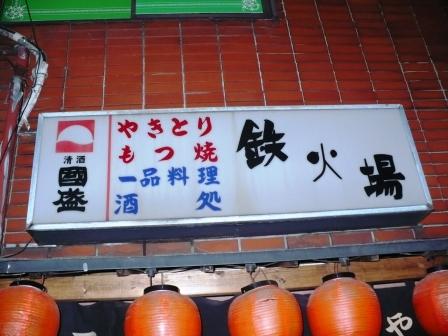 清酒
國盛
やきとり
もつ焼
一品料理
酒処
鉄火場
や